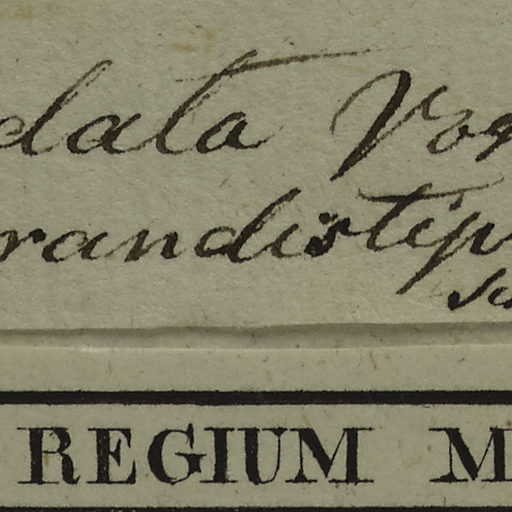 data Von
randistip
REGIUM M